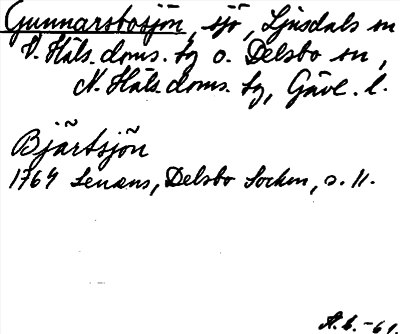 Gunnarsbosjön, sjö, Ljusdals sn
V. Häls. doms. tg o. Delsbo sn,
N. Häls. doms. tg, Gävl. l.
Bjärtsjön
1764 Lenæus, Delsbo Socken, s. 11.
A.b. -61.